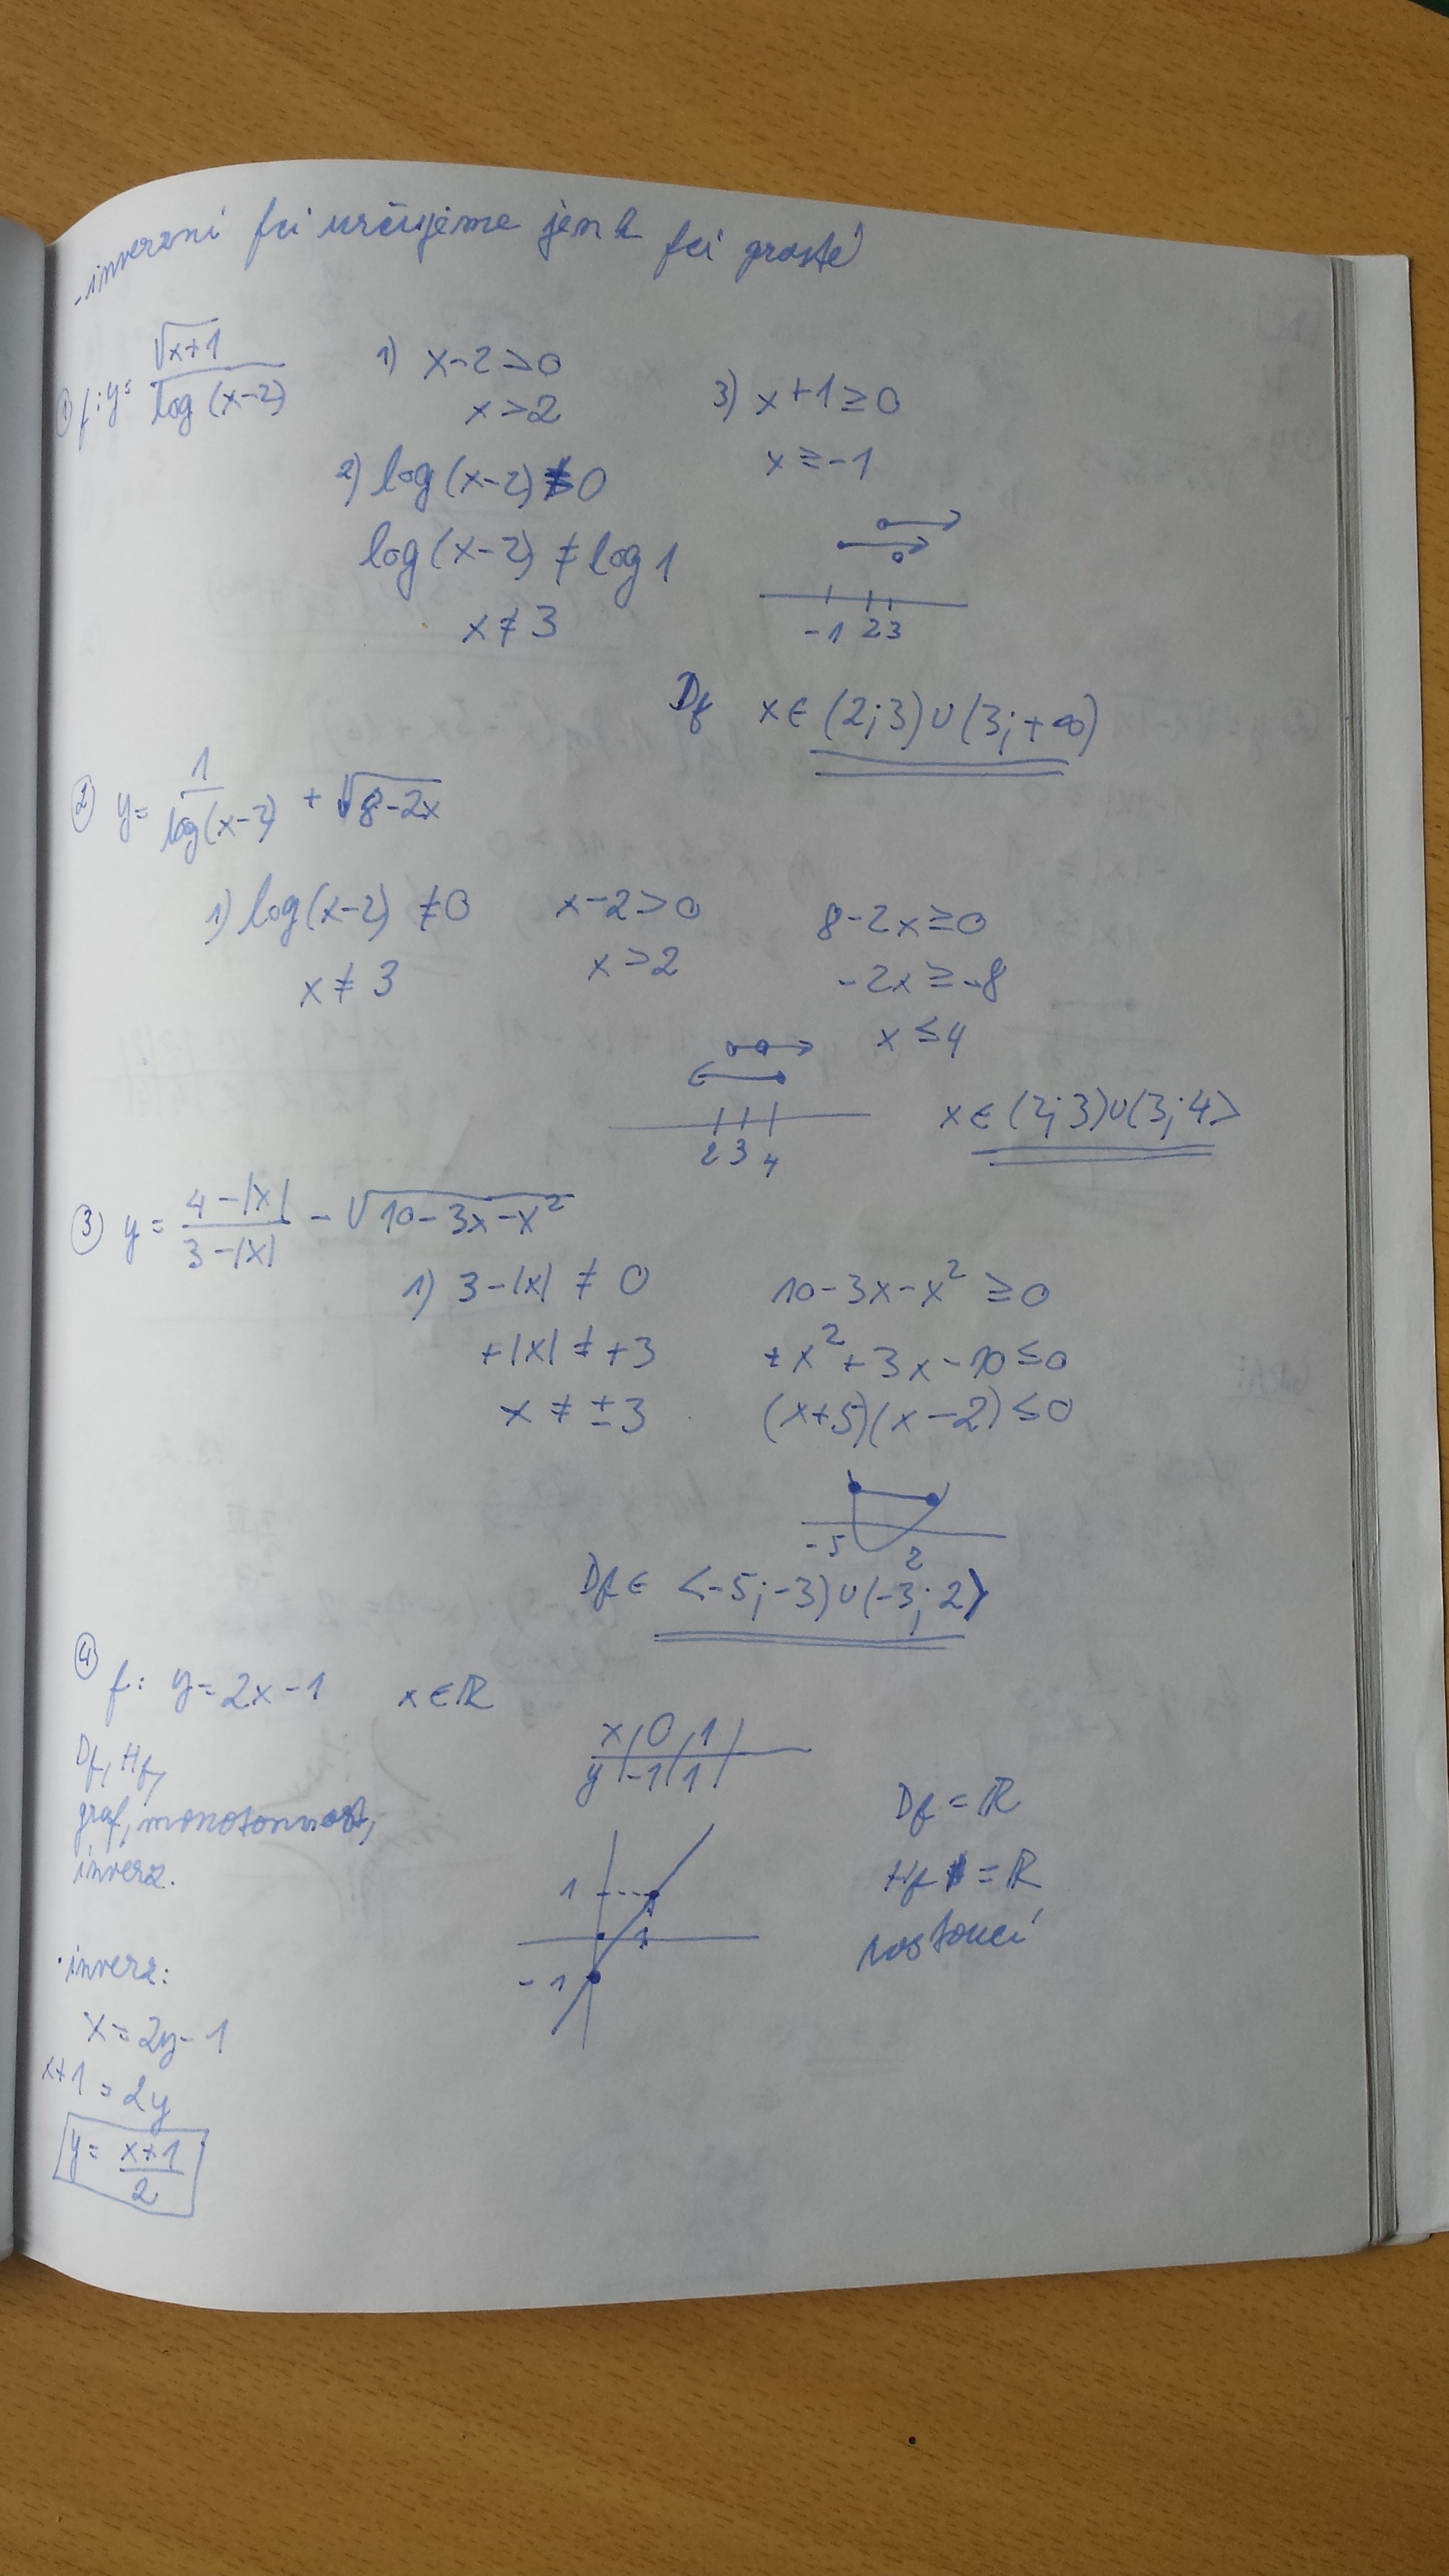 - inverzní fci určujeme jen k fci prosté
① f: y = √(x+1) / log (x-2)
1) x-2>0
x>2
2) log (x-2) ≠ 0
log (x-2) ≠ log 1
x ≠ 3
3) x+1 ≥ 0
x ≥ -1
-1 2 3
Df x ∈ (2;3) ∪ (3;+∞)
② y = 1 / log(x-2) + √(8-2x)
1) log(x-2) ≠ 0
x ≠ 3
x-2>0
x>2
8-2x ≥ 0
-2x ≥ -8
x ≤ 4
2 3 4
x ∈ (2;3) ∪ (3;4>
③ y = (4-|x|) / (3-|x|) - √(10-3x-x²)
1) 3-|x| ≠ 0
+|x| ≠ +3
x ≠ ±3
10-3x-x² ≥ 0
+x²+3x-10 ≤ 0
(x+5)(x-2) ≤ 0
-5 2
Df ∈ <-5;-3) ∪ (-3;2>
④ f: y = 2x-1 x ∈ ℝ
Df, Hf,
graf, monotonnost,
inverz.
x 0 1
y -1 1
1
1
-1
Df = ℝ
Hf = ℝ
rostoucí
· inverz:
x = 2y-1
x+1 = 2y
y = (x+1) / 2